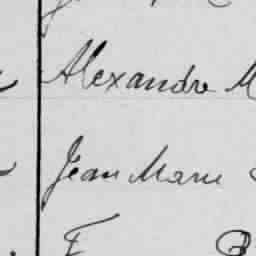 Alexandre M
Jean Marie
F B